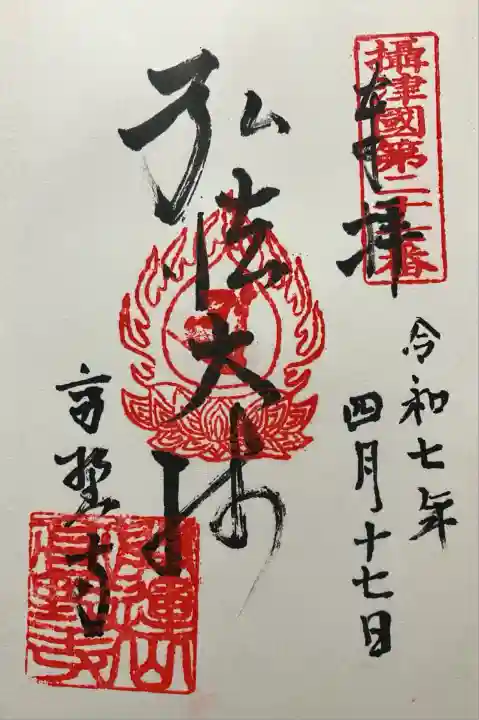 攝津國第二十番
奉拝
令和七年
四月十七日
弘法大師
高野寺